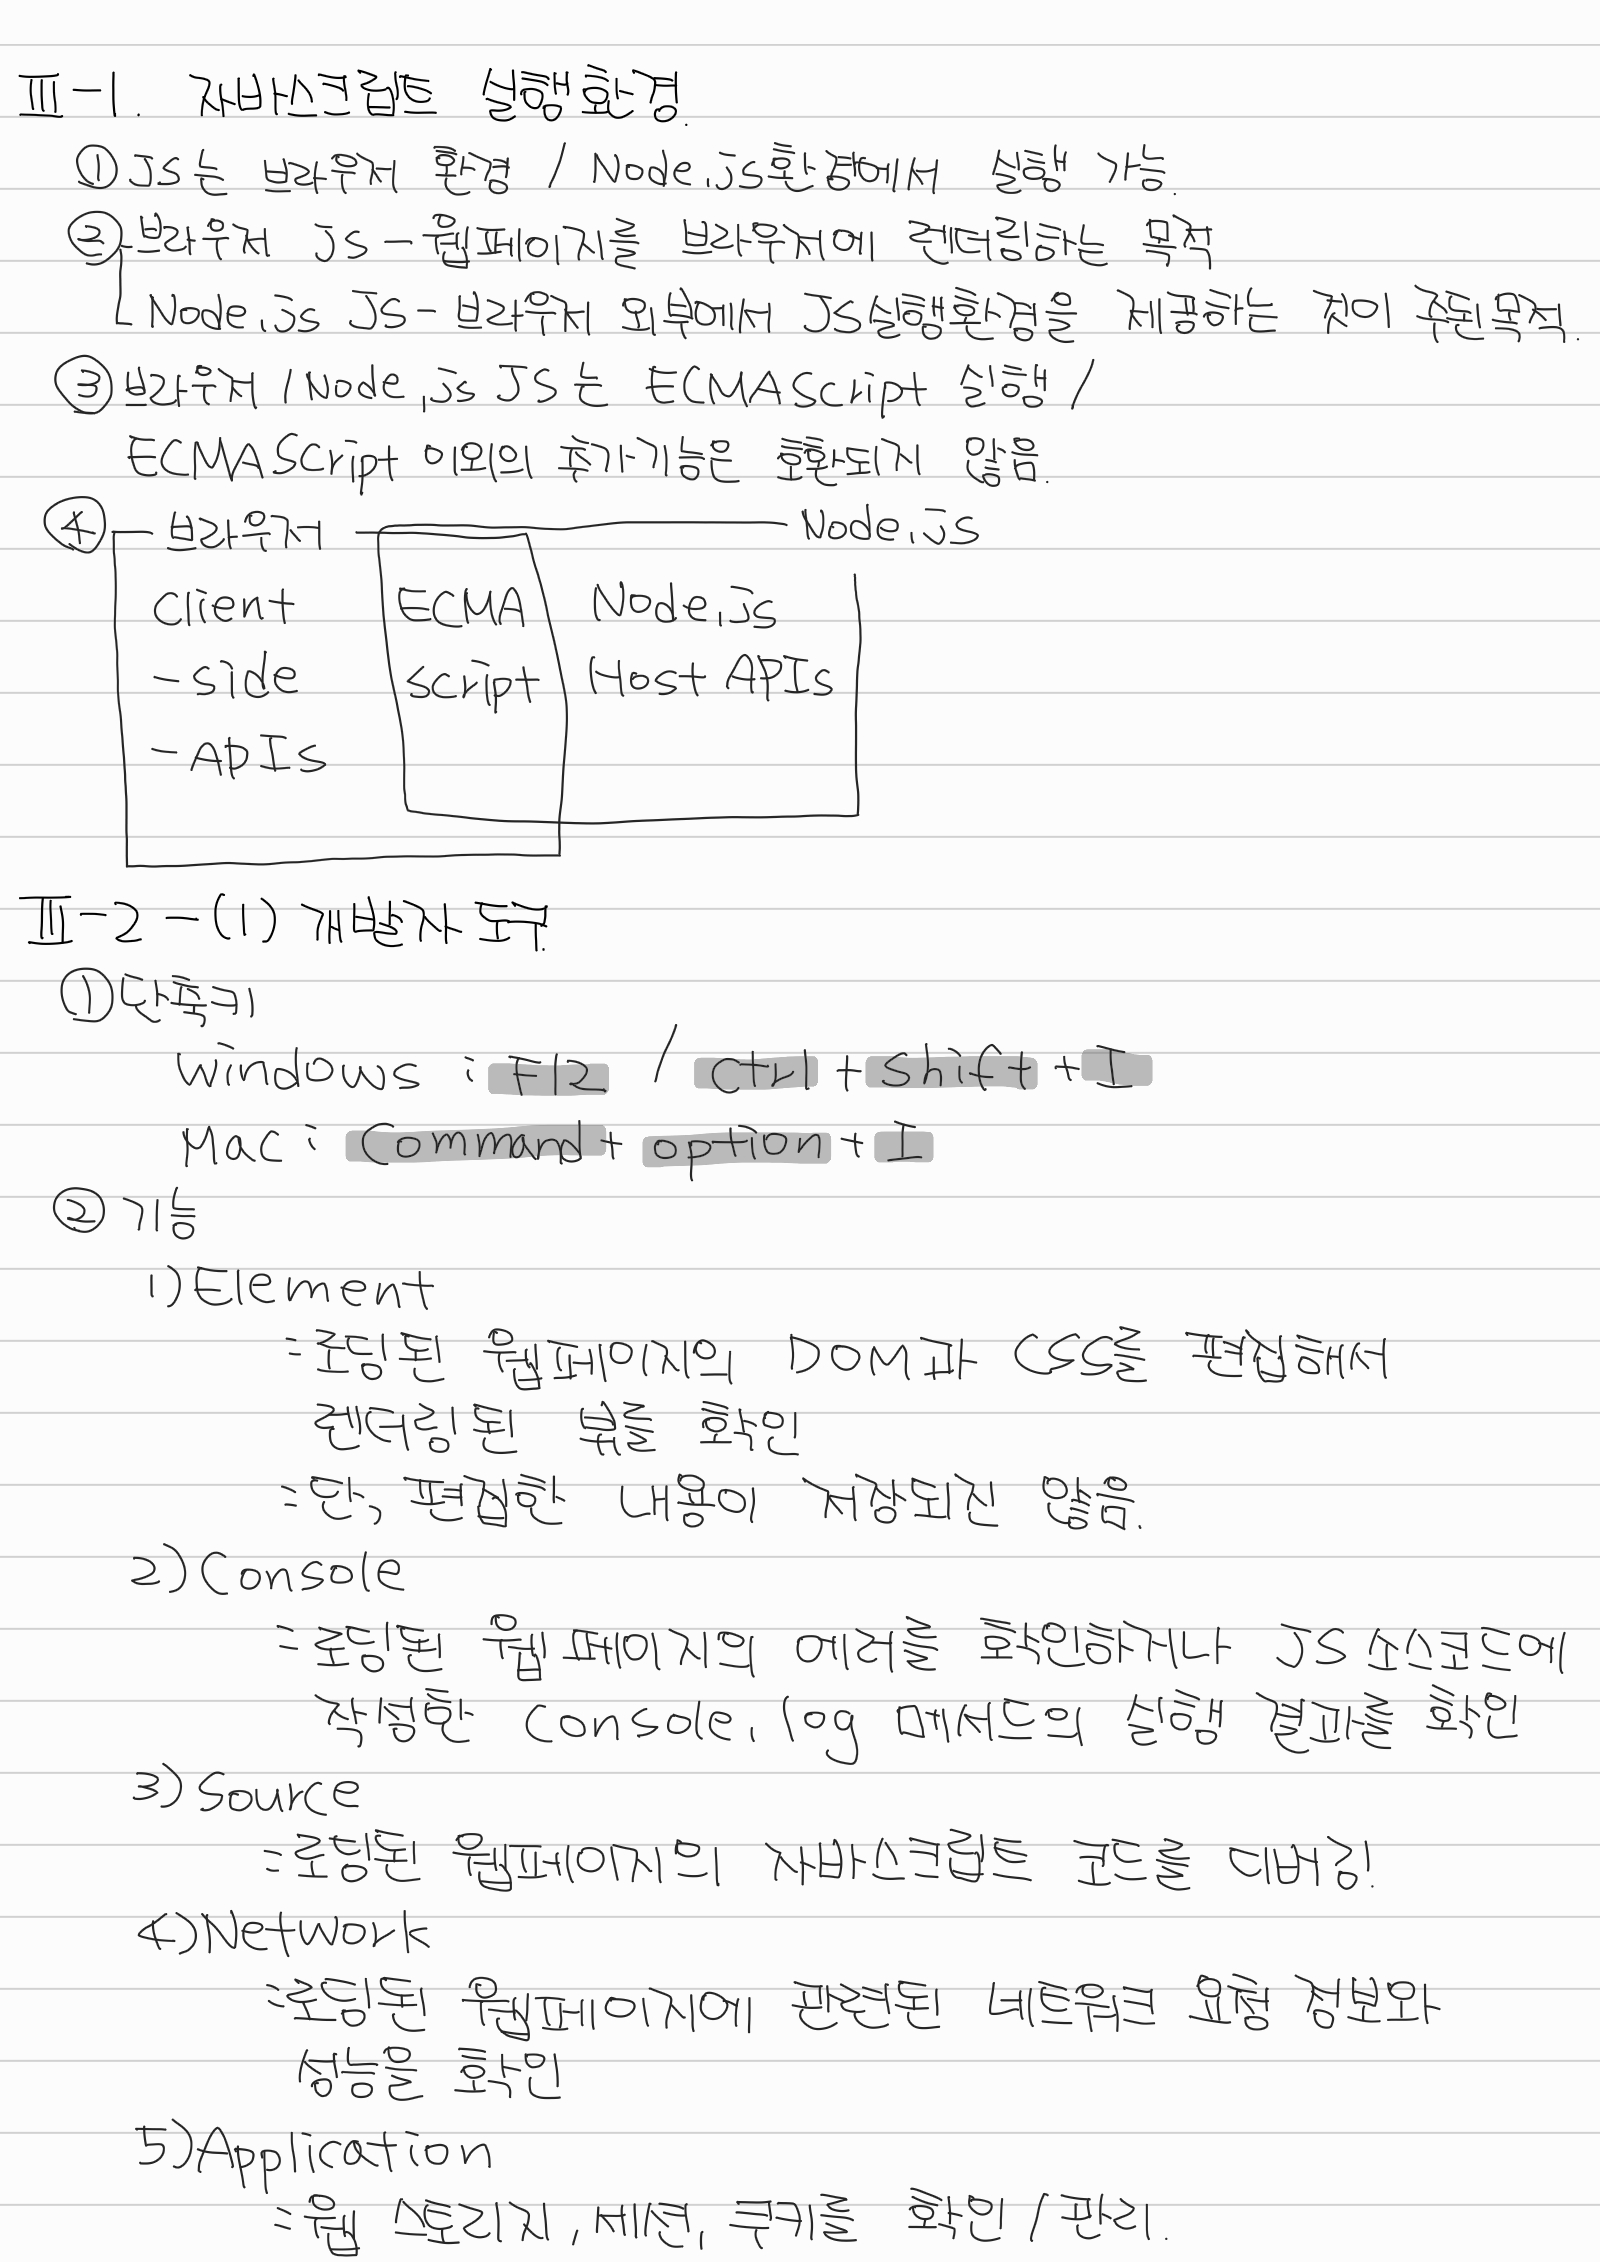 Ⅲ-1. 자바스크립트 실행환경.
① JS는 브라우저 환경 / Node.js환경에서 실행 가능.
② 브라우저 JS - 웹페이지를 브라우저에 렌더링하는 목적
Node.js JS - 브라우저 외부에서 JS실행환경을 제공하는 것이 주된목적.
③ 브라우저/Node.js JS는 ECMAScript 실행 /
ECMAScript 이외의 추가기능은 호환되지 않음.
④ 브라우저 Node.js
Client ECMA Node.js
-side Script Host APIs
-APIs
Ⅲ-2-(1) 개발자 도구.
① 단축키
Windows : F12 / Ctrl + Shift + I
Mac : Command + option + I
② 기능
1) Element
= 로딩된 웹페이지의 DOM과 CSS를 편집해서
렌더링된 뷰를 확인
= 단, 편집한 내용이 저장되진 않음.
2) Console
= 로딩된 웹페이지의 에러를 확인하거나 JS소스코드에
작성한 Console.log 메서드의 실행 결과를 확인
3) Source
= 로딩된 웹페이지의 자바스크립트 코드를 디버깅!
4) Network
= 로딩된 웹페이지에 관련된 네트워크 요청 정보와
성능을 확인
5) Application
= 웹 스토리지, 세션, 쿠키를 확인/관리.